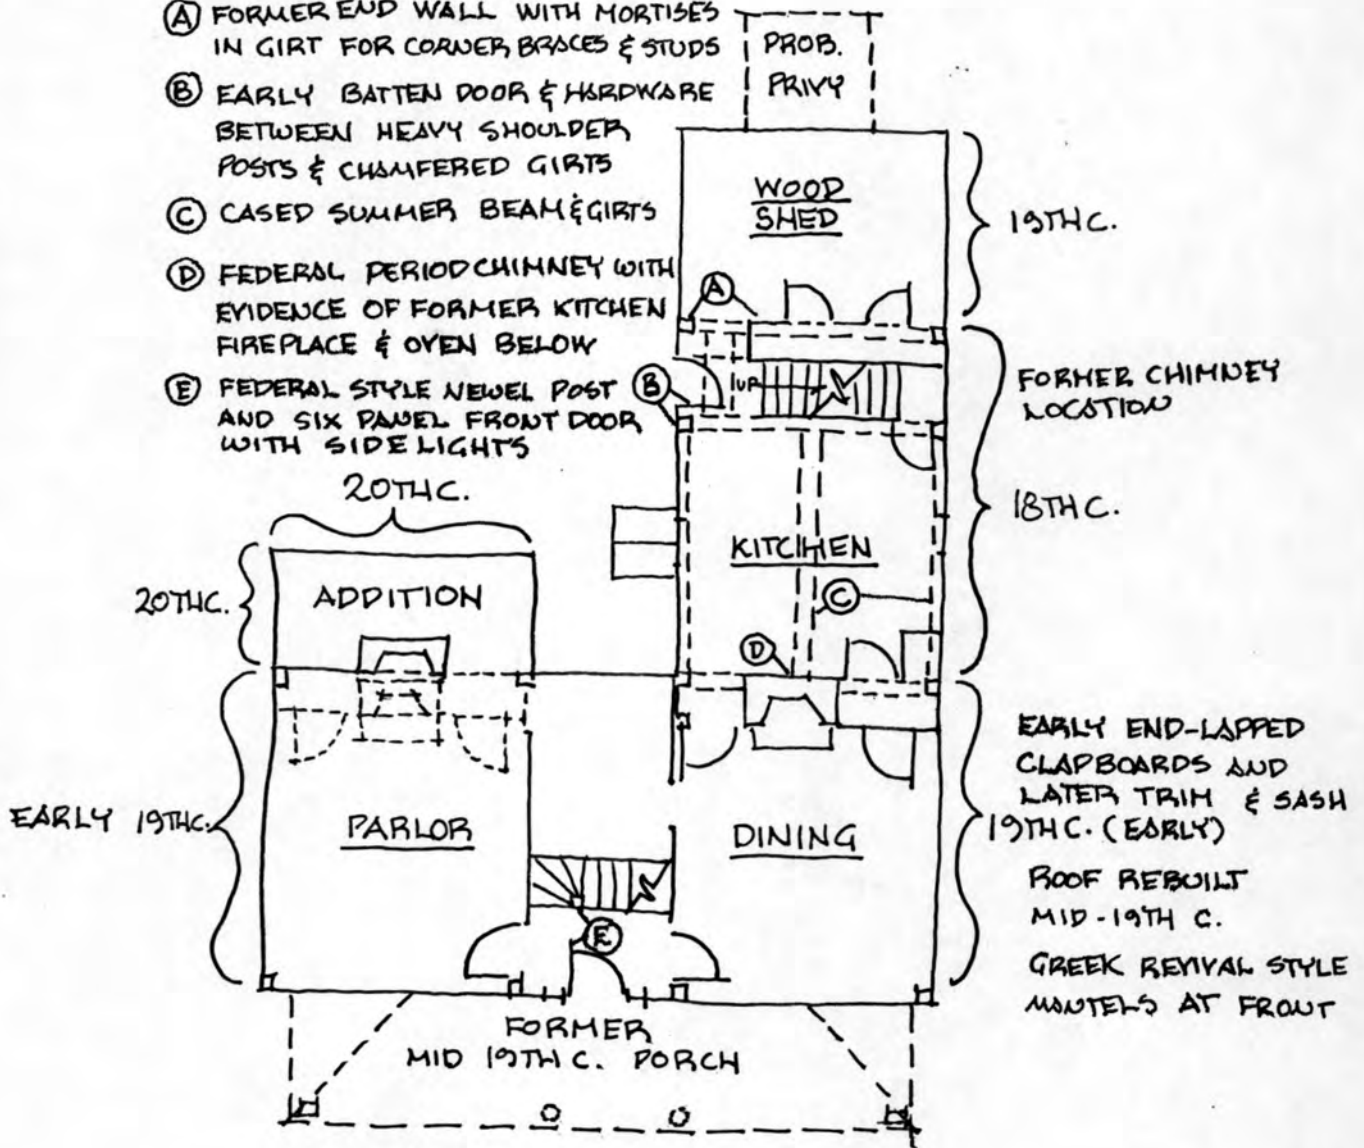 Ⓐ FORMER END WALL WITH MORTISES
IN GIRT FOR CORNER BRACES & STUDS
Ⓑ EARLY BATTEN DOOR & HARDWARE
BETWEEN HEAVY SHOULDER
POSTS & CHAMFERED GIRTS
Ⓒ CASED SUMMER BEAM & GIRTS
Ⓓ FEDERAL PERIOD CHIMNEY WITH
EVIDENCE OF FORMER KITCHEN
FIREPLACE & OVEN BELOW
Ⓔ FEDERAL STYLE NEWEL POST
AND SIX PANEL FRONT DOOR
WITH SIDE LIGHTS
PROB.
PRIVY
WOOD
SHED
19TH C.
A
B
UP
FORMER CHIMNEY
LOCATION
18TH C.
KITCHEN
C
D
20TH C.
20TH C.
ADDITION
EARLY 19TH C.
PARLOR
DINING
E
EARLY END-LAPPED
CLAPBOARDS AND
LATER TRIM & SASH
19TH C. (EARLY)
ROOF REBUILT
MID-19TH C.
GREEK REVIVAL STYLE
MANTELS AT FRONT
FORMER
MID 19TH C. PORCH